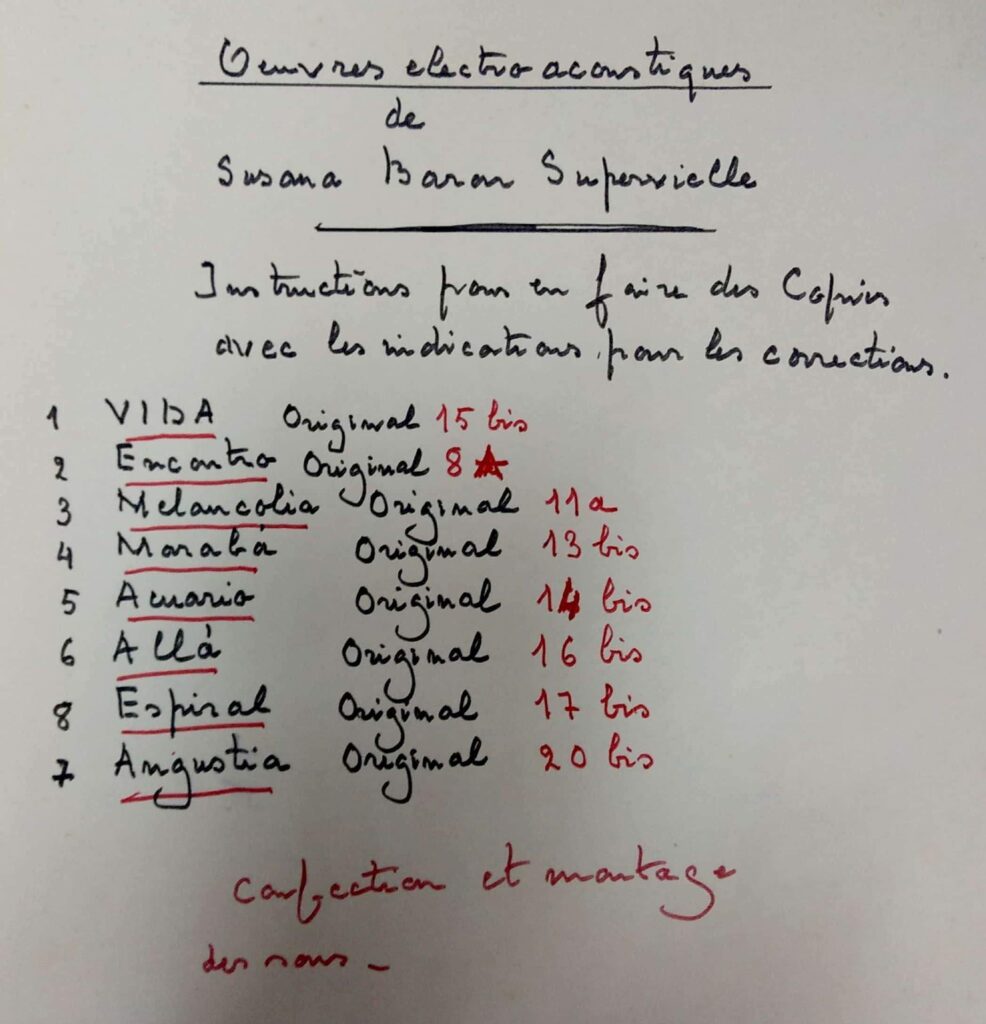 Oeuvres electroacoustiques
de
Susana Baron Supervielle
Instructions pour en faire des Copies
avec les indications pour les corrections.
1 VIDA Original 15 bis
2 Encontro Original 8 ★
3 Melancolia Original 11a
4 Marabá Original 13 bis
5 Acuario Original 14 bis
6 Allá Original 16 bis
8 Espiral Original 17 bis
7 Angustia Original 20 bis
Confection et montage
des sons -